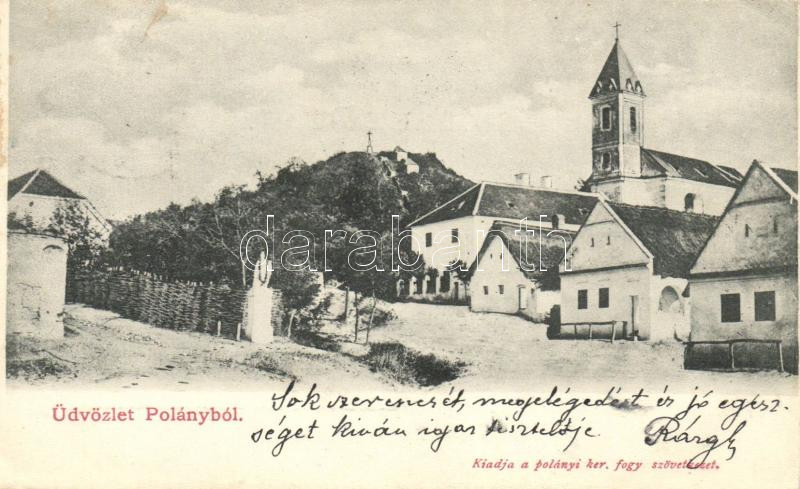 darabanth.com
Üdvözlet Polányból.
Sok szerencsét, megelégedést és jó egész-
séget kiván igaz tisztelője
Kiadja a polányi ker. fogy szövetkezet.